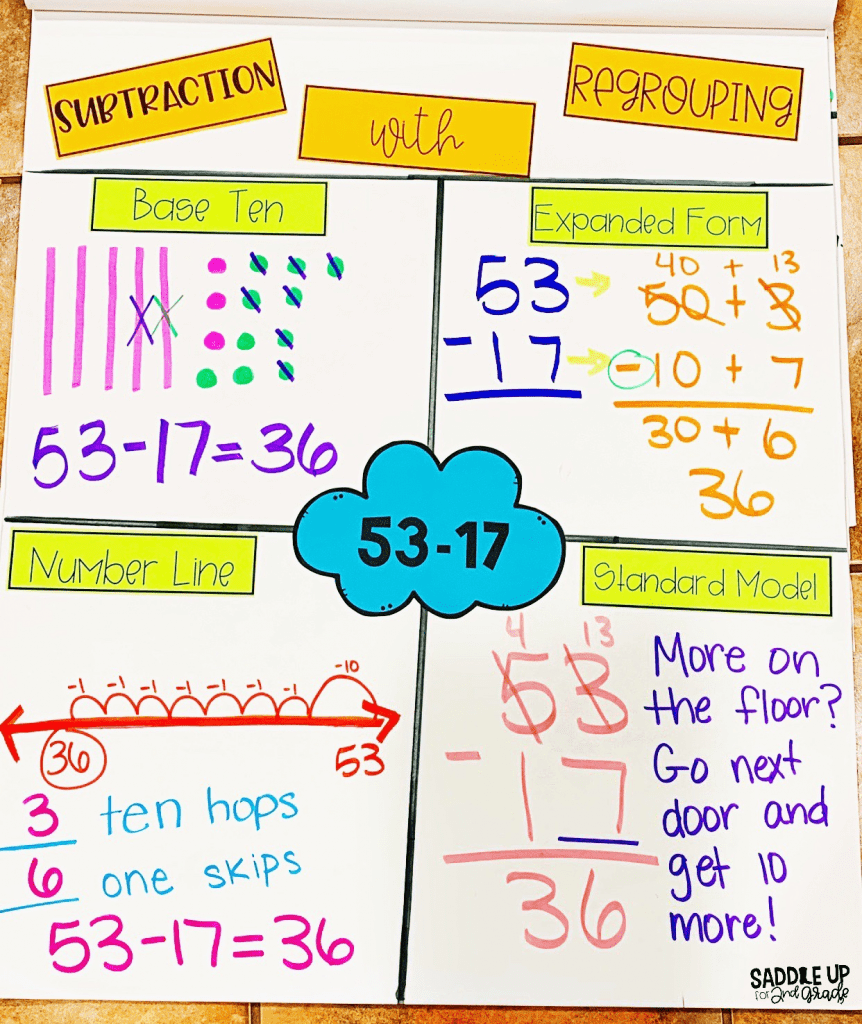 SUBTRACTION
with
REGROUPING
Base Ten
53-17=36
Expanded Form
40 + 13
53 → 50 + 3
-17 → -10 + 7
30 + 6
36
53-17
Number Line
-1 -1 -1 -1 -1 -1 -1 -10
36 53
3 ten hops
6 one skips
53-17=36
Standard Model
4 13
53
- 17
36
More on
the floor?
Go next
door and
get 10
more!
SADDLE UP
for 2nd Grade